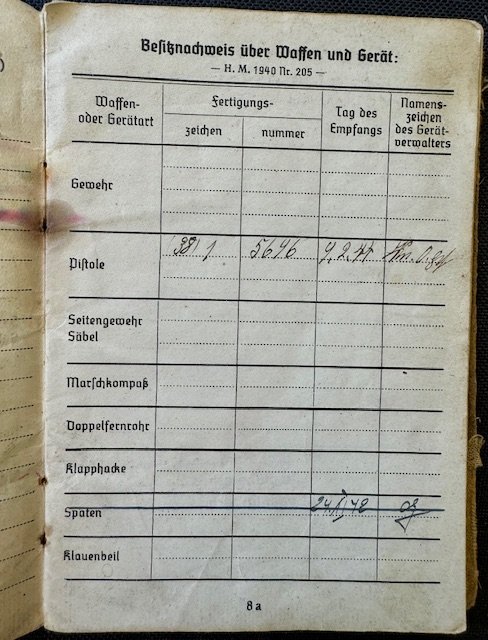 Besitznachweis über Waffen und Gerät:
— H. M. 1940 Nr. 205 —
Waffen-
oder Gerätart
Fertigungs-
zeichen
nummer
Tag des
Empfangs
Namens-
zeichen
des Gerät-
verwalters
Gewehr
Pistole
5696
Seitengewehr
Säbel
Marschkompaß
Doppelfernrohr
Klapphacke
Spaten
Klauenbeil
8a